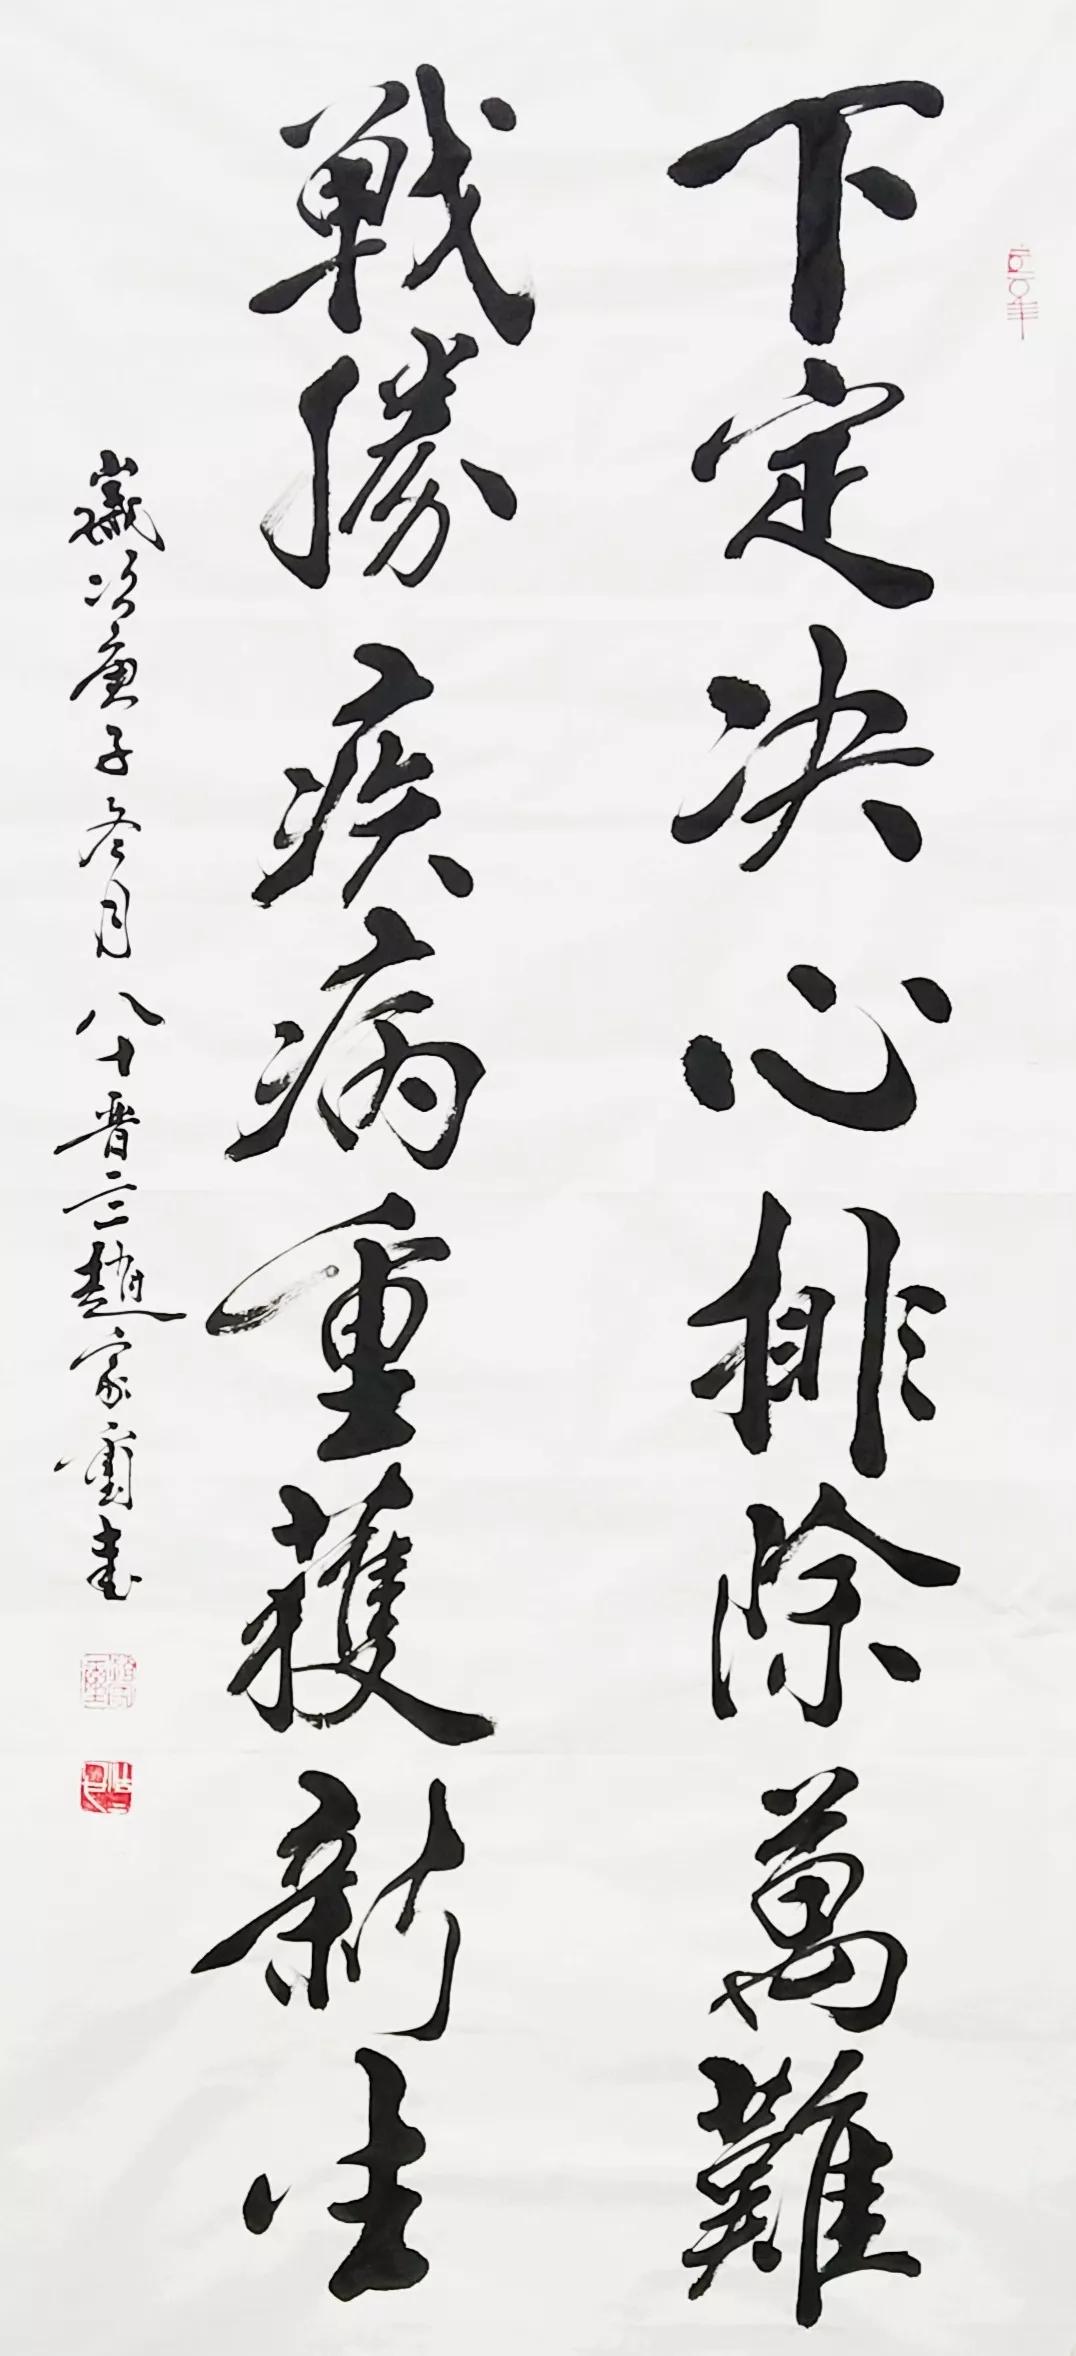 下定决心排除萬難
戰勝疾病重獲新生
歲次庚子冬月八十晋三趙家璽書